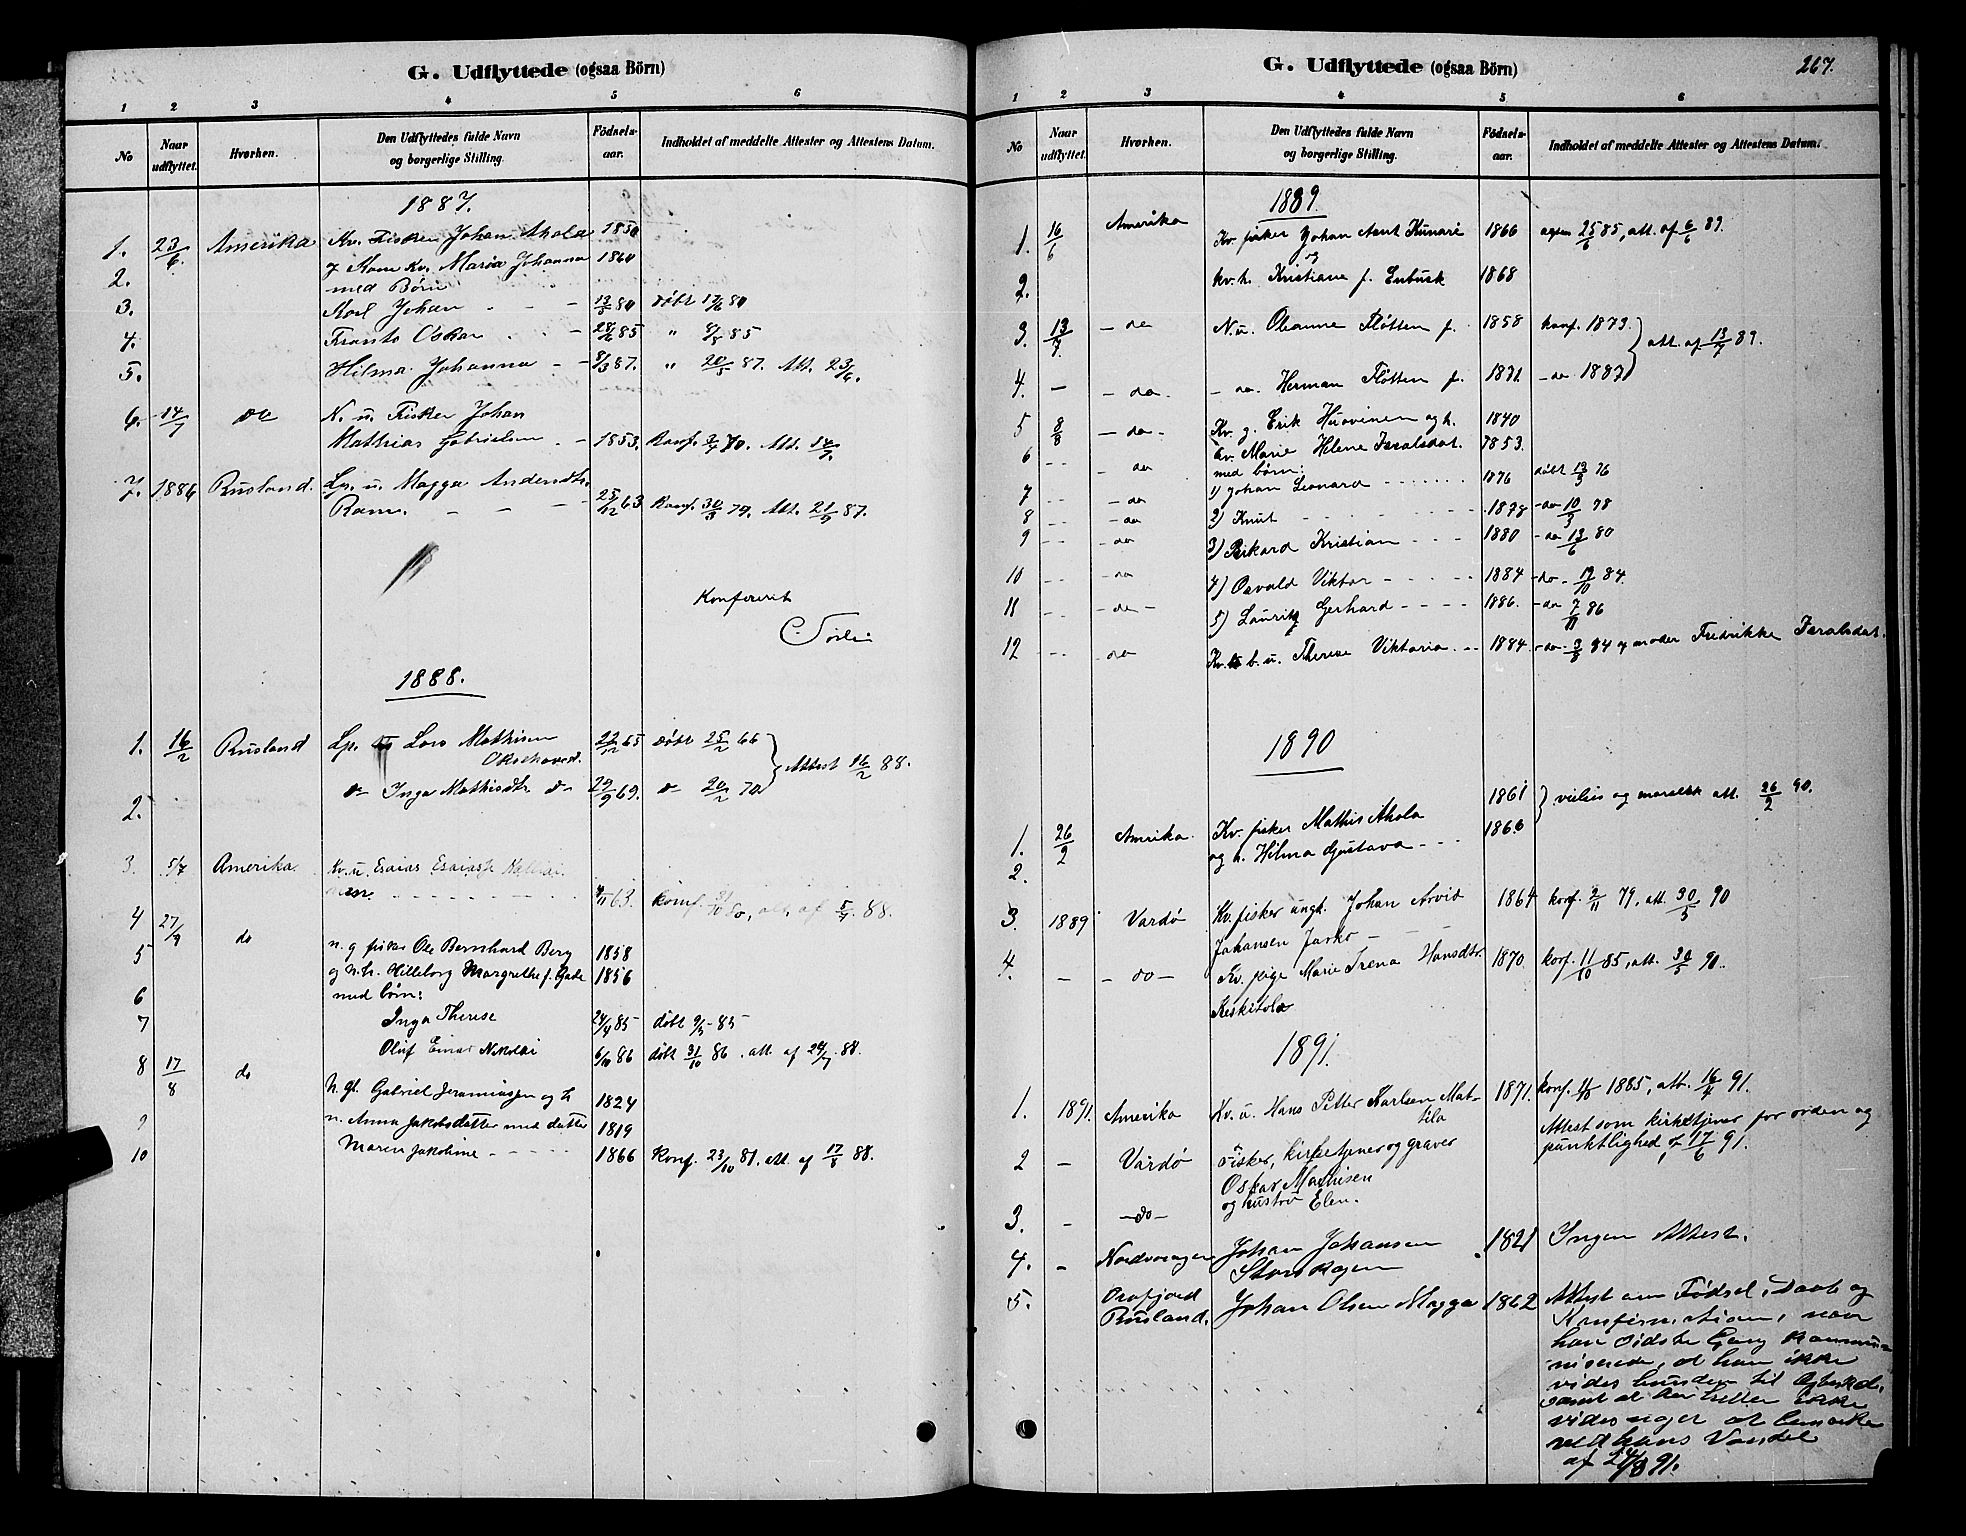 G. Udflyttede (ogsaa Börn)
1 2 3 4 5 6
No
Naar udflyttet.
Hvorhen.
Den Udflyttedes fulde Navn og borgerlige Stilling.
Födsels-aar.
Indholdet af meddelte Attester og Attestens Datum.
1887.
1. 23/6 Amerika Kv. Fisker Johan Ahola 1850
2. Kone Kv. Maria Johanna 1860
med Börn
3. Karl Johan - - 80 döbt 80
4. Frants Oskar - - 28/6 85 " 8/8 85
5. Hilma Johanna - - 8/3 87. " 20/5 87. Att. 23/6.
6. 14/7 do N. u. Fisker Johan
Mathias Gabrielsen - 1853. Konf. 70. Att. 14/7.
7. 1886 Rusland. Lp. u. Magga Andersdtr.
- - - 25/12 63 Konf. 30/3 79. Att. 21/9 87.
Konfereret
1888.
1. 16/2 Rusland Lp. Lars Mathisen 22/12 65 döbt 25/2 66
Attest 16/2 88.
2. do Inga Mathisdtr. do 29/9 69. do 20/2 70
3. 5/7 Amerika Kv. u. Esaias Esaiass.
63. konf. 80, att. af 88.
4 27/7 do n. g. fisker Ole Bernhard Berg 1858
5 og n. h. Hilleborg Margrethe f. 1856
med börn:
6 Inga Therese 24/4 85 döbt 9/5 85
7 Oluf Einar Nikolai 6/10 86 döbt 31/10 86. att. af 24/7 88.
8 17/8 do n. gl. Gabriel Jeremiassen og h 1824
9 n. Anna Jakobsdatter med datter 1819
10 Maren Jakobine - - - - - 1866 Konf. 23/10 81. att. af 17/8 88.
G. Udflyttede (ogsaa Börn)
267.
1 2 3 4 5 6
No
Naar udflyttet.
Hvorhen.
Den Udflyttedes fulde Navn og borgerlige Stilling.
Födsels-aar.
Indholdet af meddelte Attester og Attestens Datum.
1889.
1. 16/6 Amerika Kv. fisker Johan Kunari 1866 25/6 85, att. af 6/6 89.
og
2. kv. h. Kristiane f. Enbusk 1868
3. 13/7 - do N. u. Oleanne Fløtten f. 1858 konf. 1873.
att. af 13/7 89.
4. - - do - - do. Herman Fløtten f. 1871. - do 1887
5 8/8 - do - Kv. g. Erik Huovinen og h. 1840
6 - - - do kv. Marie Helene Israelsdat. 1853.
med börn:
7 - - - do 1) Johan Leonard - - - - 1876 döbt 13/3 76
8 - - - do 2) Knut - - - - 1878 - do 10/3 78
9 - - - do 3) Rikard Kristian - - - 1880 - do 13/6 80
10 - - - do 4) Osvald Viktor - - - - 1884 - do. 19/10 84.
11 - - - do - 5) Lauritz Gerhard - - - - 1886. - do 7/11 86
12 - - do Kv. b. u. Therese Viktoria - - 1884. - do. 3/8 84 moder Fredrikke Israelsdat.
1890
1861
og moralsk att. 26/2 90.
1. 26/2 Amrika. Kv. fisker Mathis Ahola 1866
2. og h. Hilma Gustava - - -
3. 1889 Vardø Kv. fisker ungk. Johan Arvid 1864 konf. 2/11 79, att. 30/5 90
Johansen - - -
4. - - do - Kv. pige Marie Irena Hansdtr. 1870 konf. 11/10 85, att. 30/5 90.
Keskitalo
1891.
1. 1891. Amerika Kv. u. Hans Petter Karlsen Mat- 1871. konf. 1885, att. 16/4 91.
tila
Attest som kirketjener for orden og
2 - Vardø fisker, kirketjener og graver punktlighed af 17/6 91.
Oskar Mathisen
3. - - do - og hustru Elen.
4. - Johan Johansen 1821 Ingen Attest.
Storskogen
5. Rusland. Johan Olsen Magga 1862 Attest om Födsel, Daab og
Konfirmation, naar
han sidste Gang kommuni-
niserede, at han ikke
vides bunden til
samt at der heller ikke
vides noget at bemærke
ved hans Vandel
af 24/8 91.